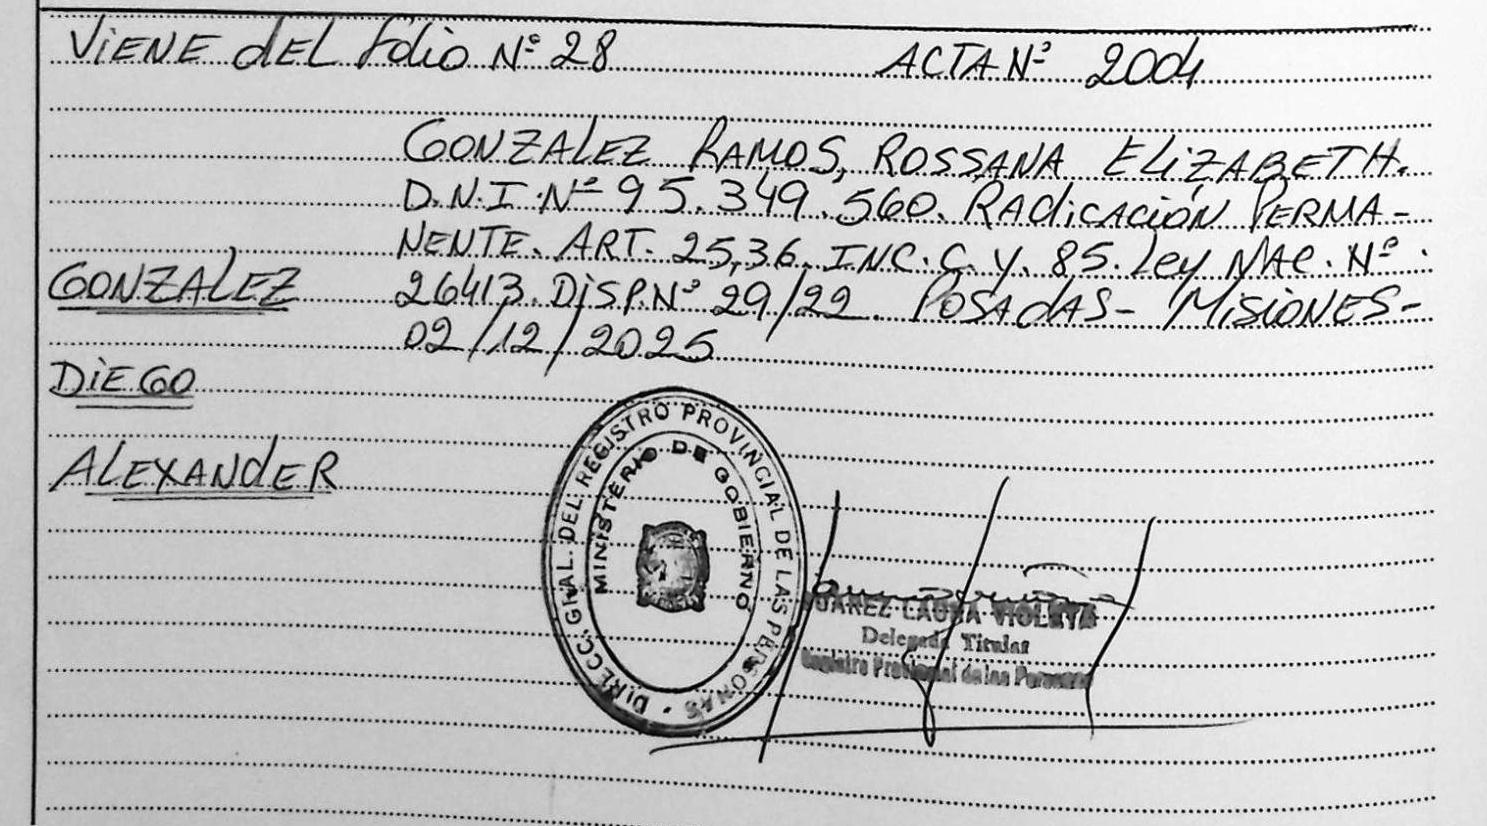 ViENE dEL folio Nº 28 ACTA Nº 2004
GONZALEZ RAMOS, ROSSANA ELiZABETH.
D.N.I. Nº 95.349.560. RAdiCACiÓN PERMA-
NENTE. ART. 25,36. INC. C. Y. 85. Ley NAC. Nº
GONZALEZ 26413. DiSP. Nº 29/22. POSAdAS- MiSiONES-
02/12/2025
DiEGO
ALEXANdER
DIRECC. GRAL. DEL REGISTRO PROVINCIAL DE LAS PERSONAS
MINISTERIO DE GOBIERNO
JUAREZ LAURA VIOLETA
Delegada Titular
Registro Provincial de las Personas